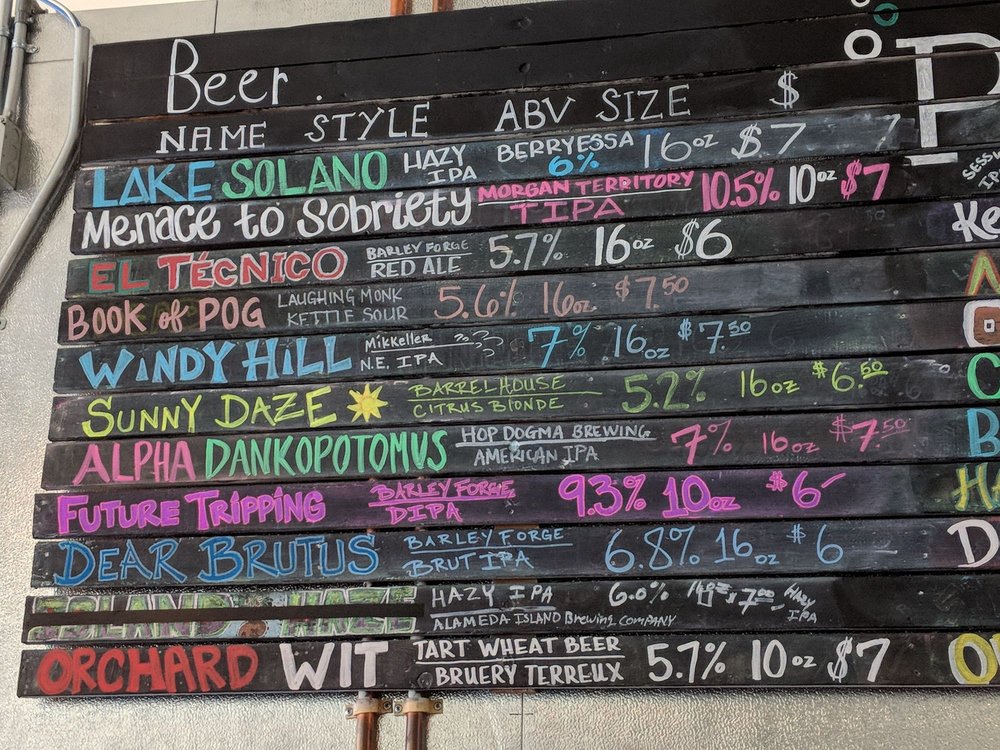 Beer.
NAME STYLE ABV SIZE $
LAKE SOLANO HAZY IPA BERRYESSA 6% 16oz $7
Menace to Sobriety MORGAN TERRITORY TIPA 10.5% 10oz $7
EL TÉCNICO BARLEY FORGE RED ALE 5.7% 16oz $6
BOOK of POG LAUGHING MONK KETTLE SOUR 5.6% 16oz $7.50
WiNDY HiLL Mikkeller N.E. IPA 7% 16oz $7.50
SUNNY DAZE BARRELHOUSE CITRUS BLONDE 5.2% 16oz $6.50
ALPHA DANKOPOTOMUS HOP DOGMA BREWING AMERICAN IPA 7% 16oz $7.50
FUTURE TRIPPING BARLEY FORGE DIPA 9.3% 10oz $6
DEAR BRUTUS BARLEY FORGE BRUT IPA 6.8% 16oz $6
HAZY IPA ALAMEDA ISLAND Brewing COMPANY 6.0% 7.00 HAZY IPA
ORCHARD WIT TART WHEAT BEER BRUERY TERREUX 5.7% 10oz $7